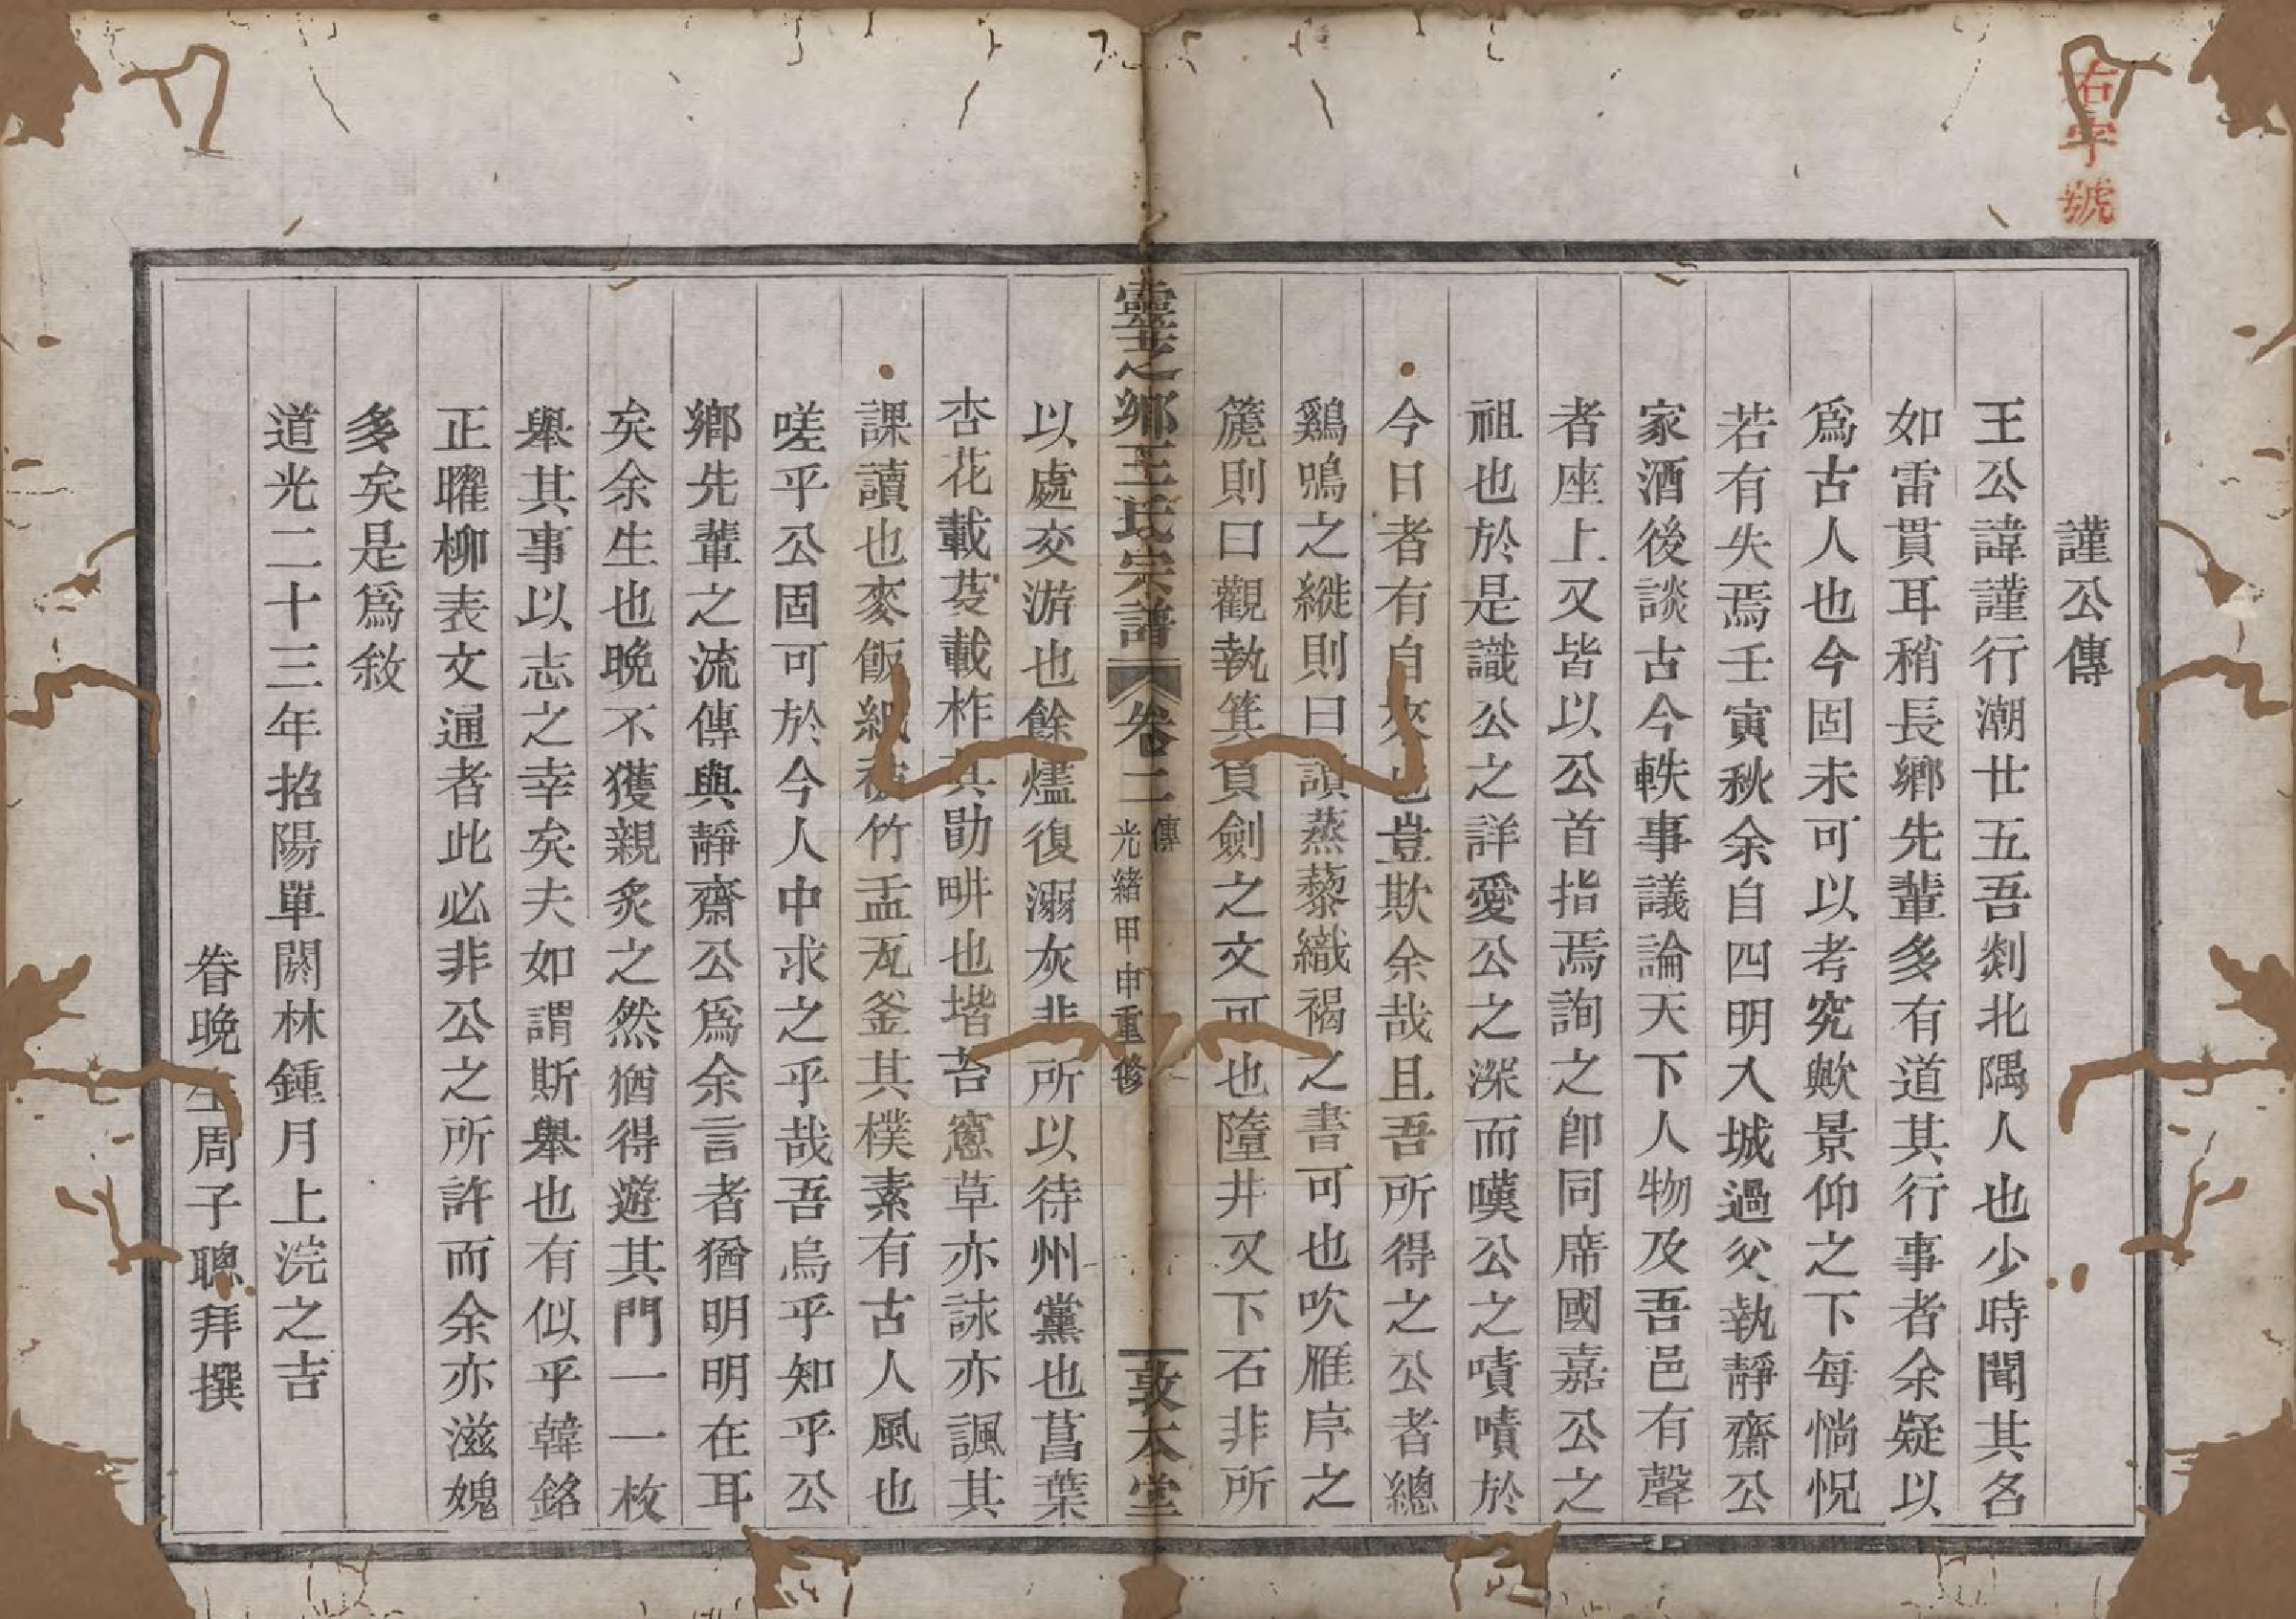 右字號
謹公傳
王公諱謹行潮廿五吾剡北隅人也少時聞其名
如雷貫耳稍長鄉先輩多有道其行事者余疑以
爲古人也今固未可以考究歟景仰之下每惝怳
若有失焉壬寅秋余自四明入城過父執靜齋公
家酒後談古今軼事議論天下人物及吾邑有聲
者座上又皆以公首指焉詢之卽同席國嘉公之
祖也於是識公之詳愛公之深而嘆公之嘖嘖於
今日者有自來也豈欺余哉且吾所得之公者總
鷄鳴之縱則曰讀蒸藜織褐之書可也吹雁序之
篪則曰觀執箕負劍之文可也墮井又下石非所
靈芝鄉王氏宗譜 卷二 傳 光緒甲申重修 敦本堂
以處交游也餘燼復溺灰非所以待州黨也菖葉
杏花載芟載柞其勖畊也堦苔窻草亦詠亦諷其
課讀也麥飯紙被竹盂瓦釜其樸素有古人風也
嗟乎公固可於今人中求之乎哉吾烏乎知乎公
鄉先輩之流傳與靜齋公爲余言者猶明明在耳
矣余生也晚不獲親炙之然猶得遊其門一一枚
舉其事以志之幸矣夫如謂斯舉也有似乎韓銘
正曜柳表文通者此必非公之所許而余亦滋媿
多矣是爲敘
道光二十三年招陽單閼林鍾月上浣之吉
眷晚生周子聰拜撰